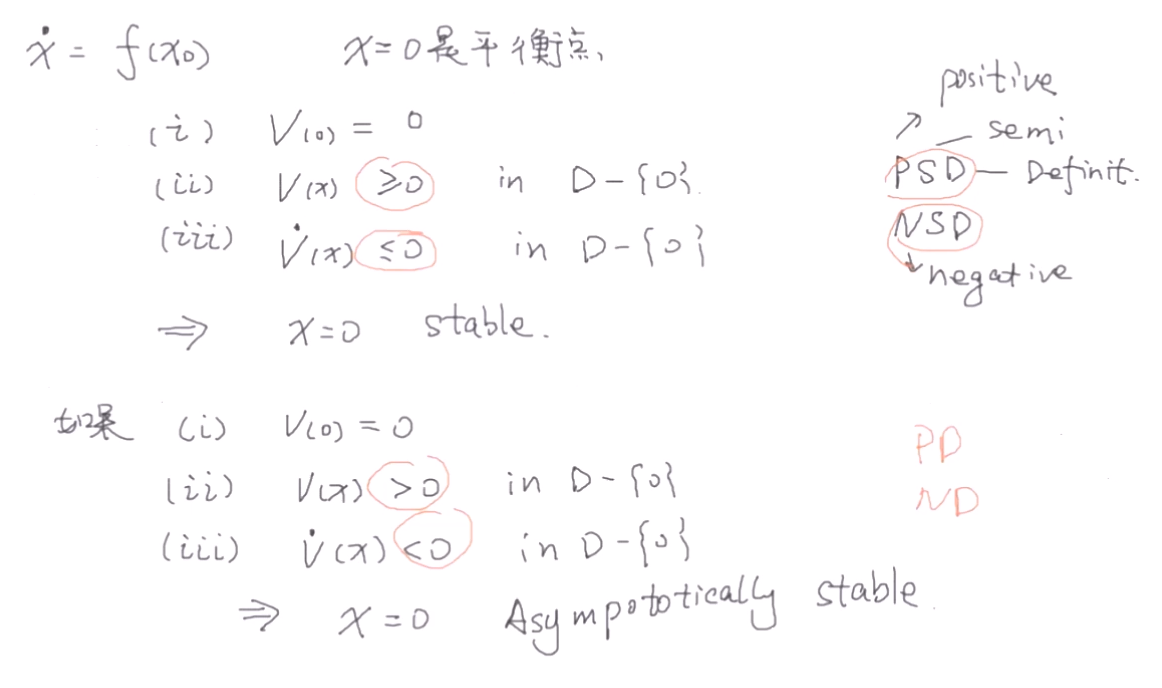 ẋ = f(x₀) x=0是平衡点,
(i) V(0) = 0
(ii) V(x) ≥0 in D-{0}.
(iii) V̇(x) ≤0 in D-{0}
⇒ x=0 stable.
positive
semi
PSD — Definit.
NSD
negative
如果 (i) V(0) = 0
(ii) V(x) >0 in D-{0}
(iii) V̇(x) <0 in D-{0}
⇒ x=0 Asympototically stable.
PD
ND